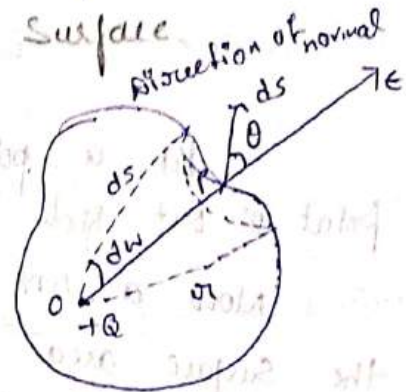 Surface
Direction of normal
ds
E
θ
ds
r
dw
O
+Q
r